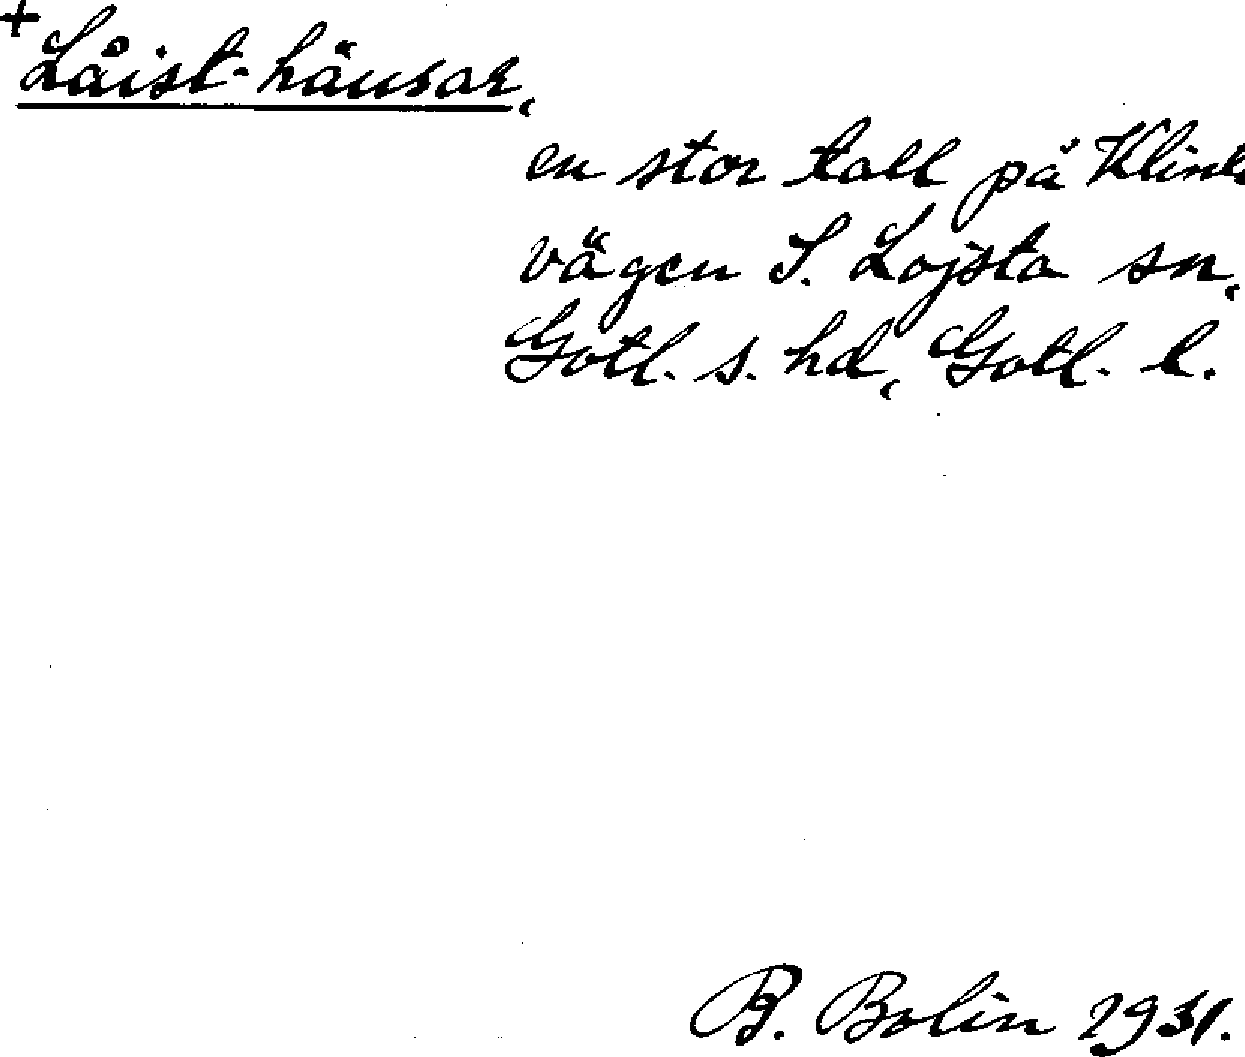 +
Låist-häusar,
en stor tall på Klinte
vägen I. Lojsta sn,
Gotl. s. hd, Gotl. l.
B. Bolin 1931.